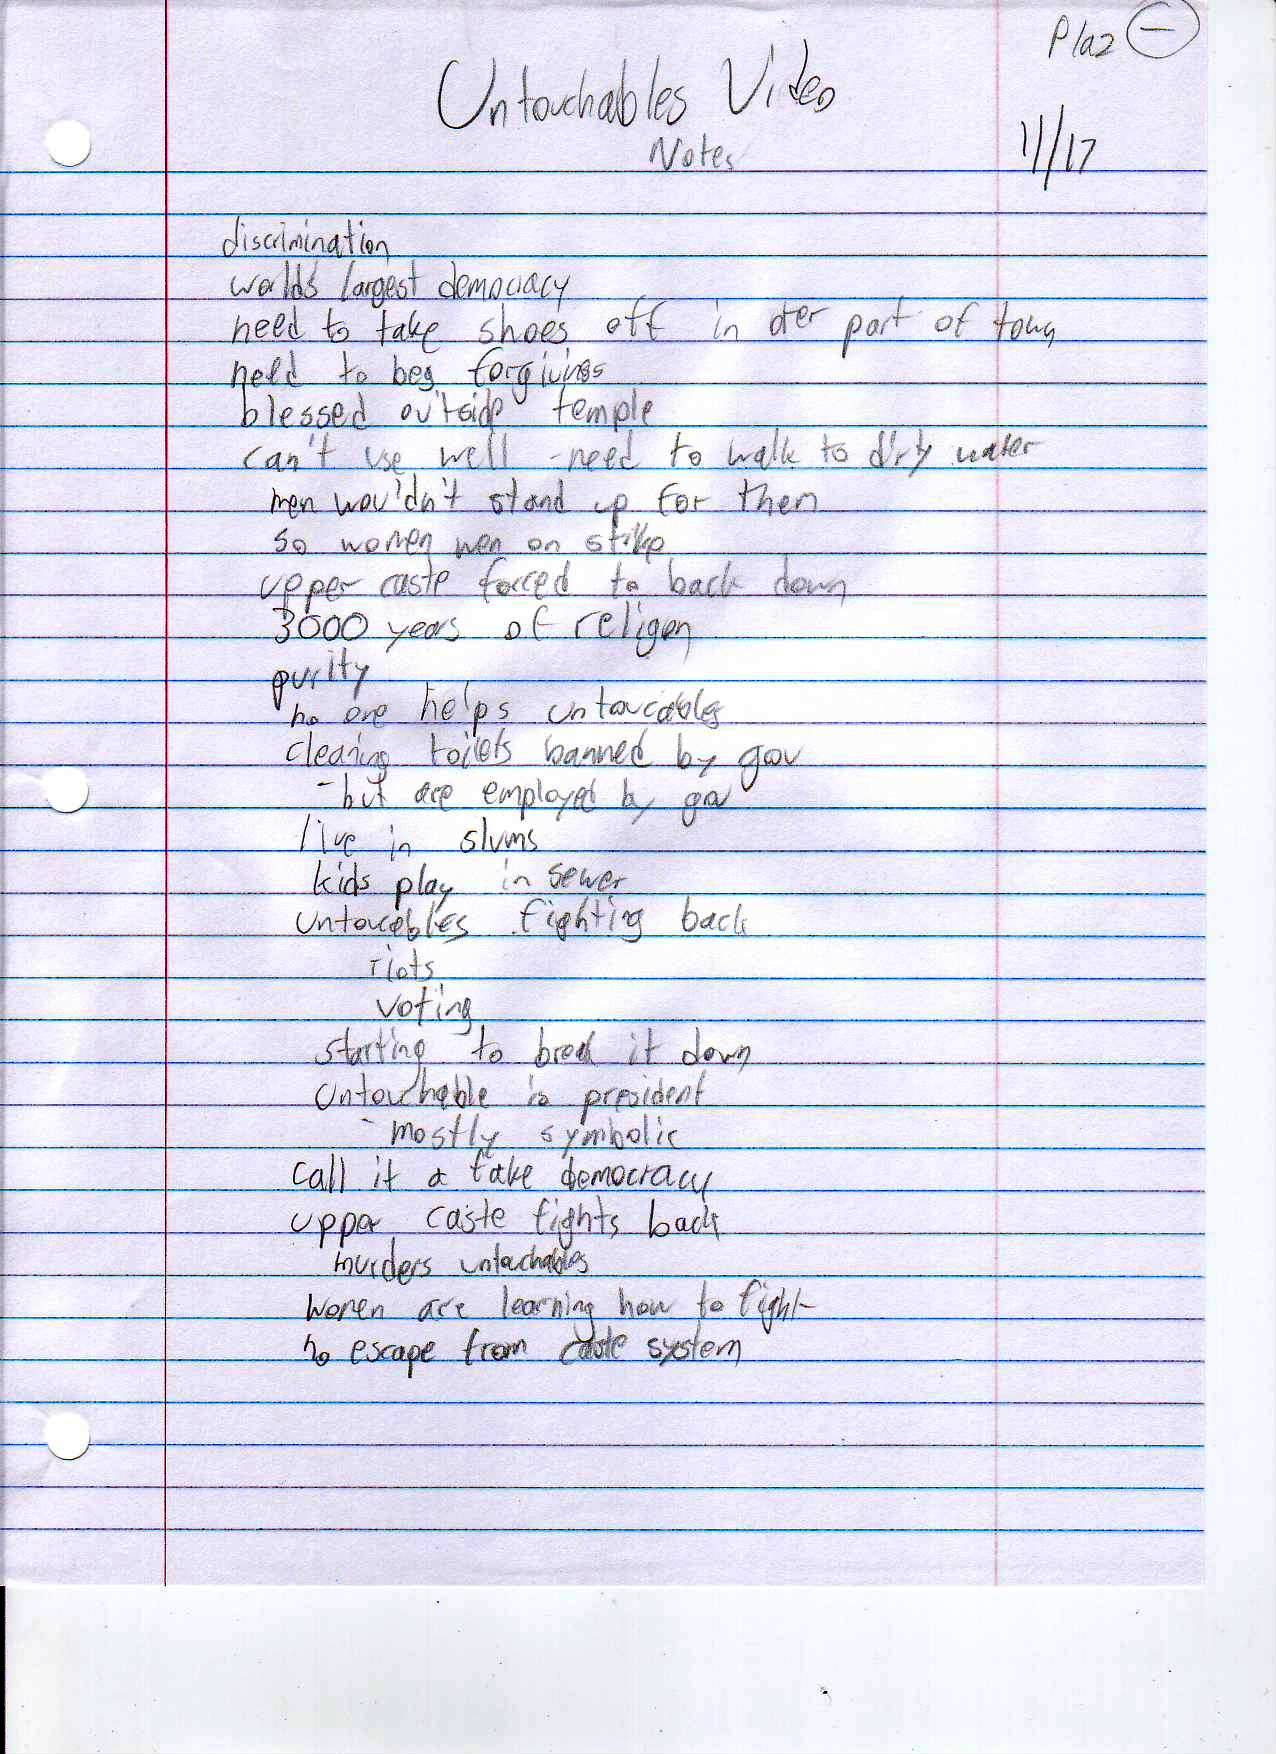 Untouchables Video
Notes
11/17
discrimination
worlds largest democracy
need to take shoes off in oter part of town
need to beg forgivings
blessed outside temple
can't use well - need to walk to dirty water
men wouldn't stand up for them
so women wen on strike
upper caste forced to back down
3000 years of religon
purity
no one helps untoucables
cleaning toilets banned by gov
- but are employed by gov
live in slums
kids play in sewer
Untoucebles fighting back
riots
voting
starting to break it down
Untouchable is president
- mostly symbolic
call it a fake democracy
upper caste fights back
murders untouchables
women are learning how to fight
no escape from caste system